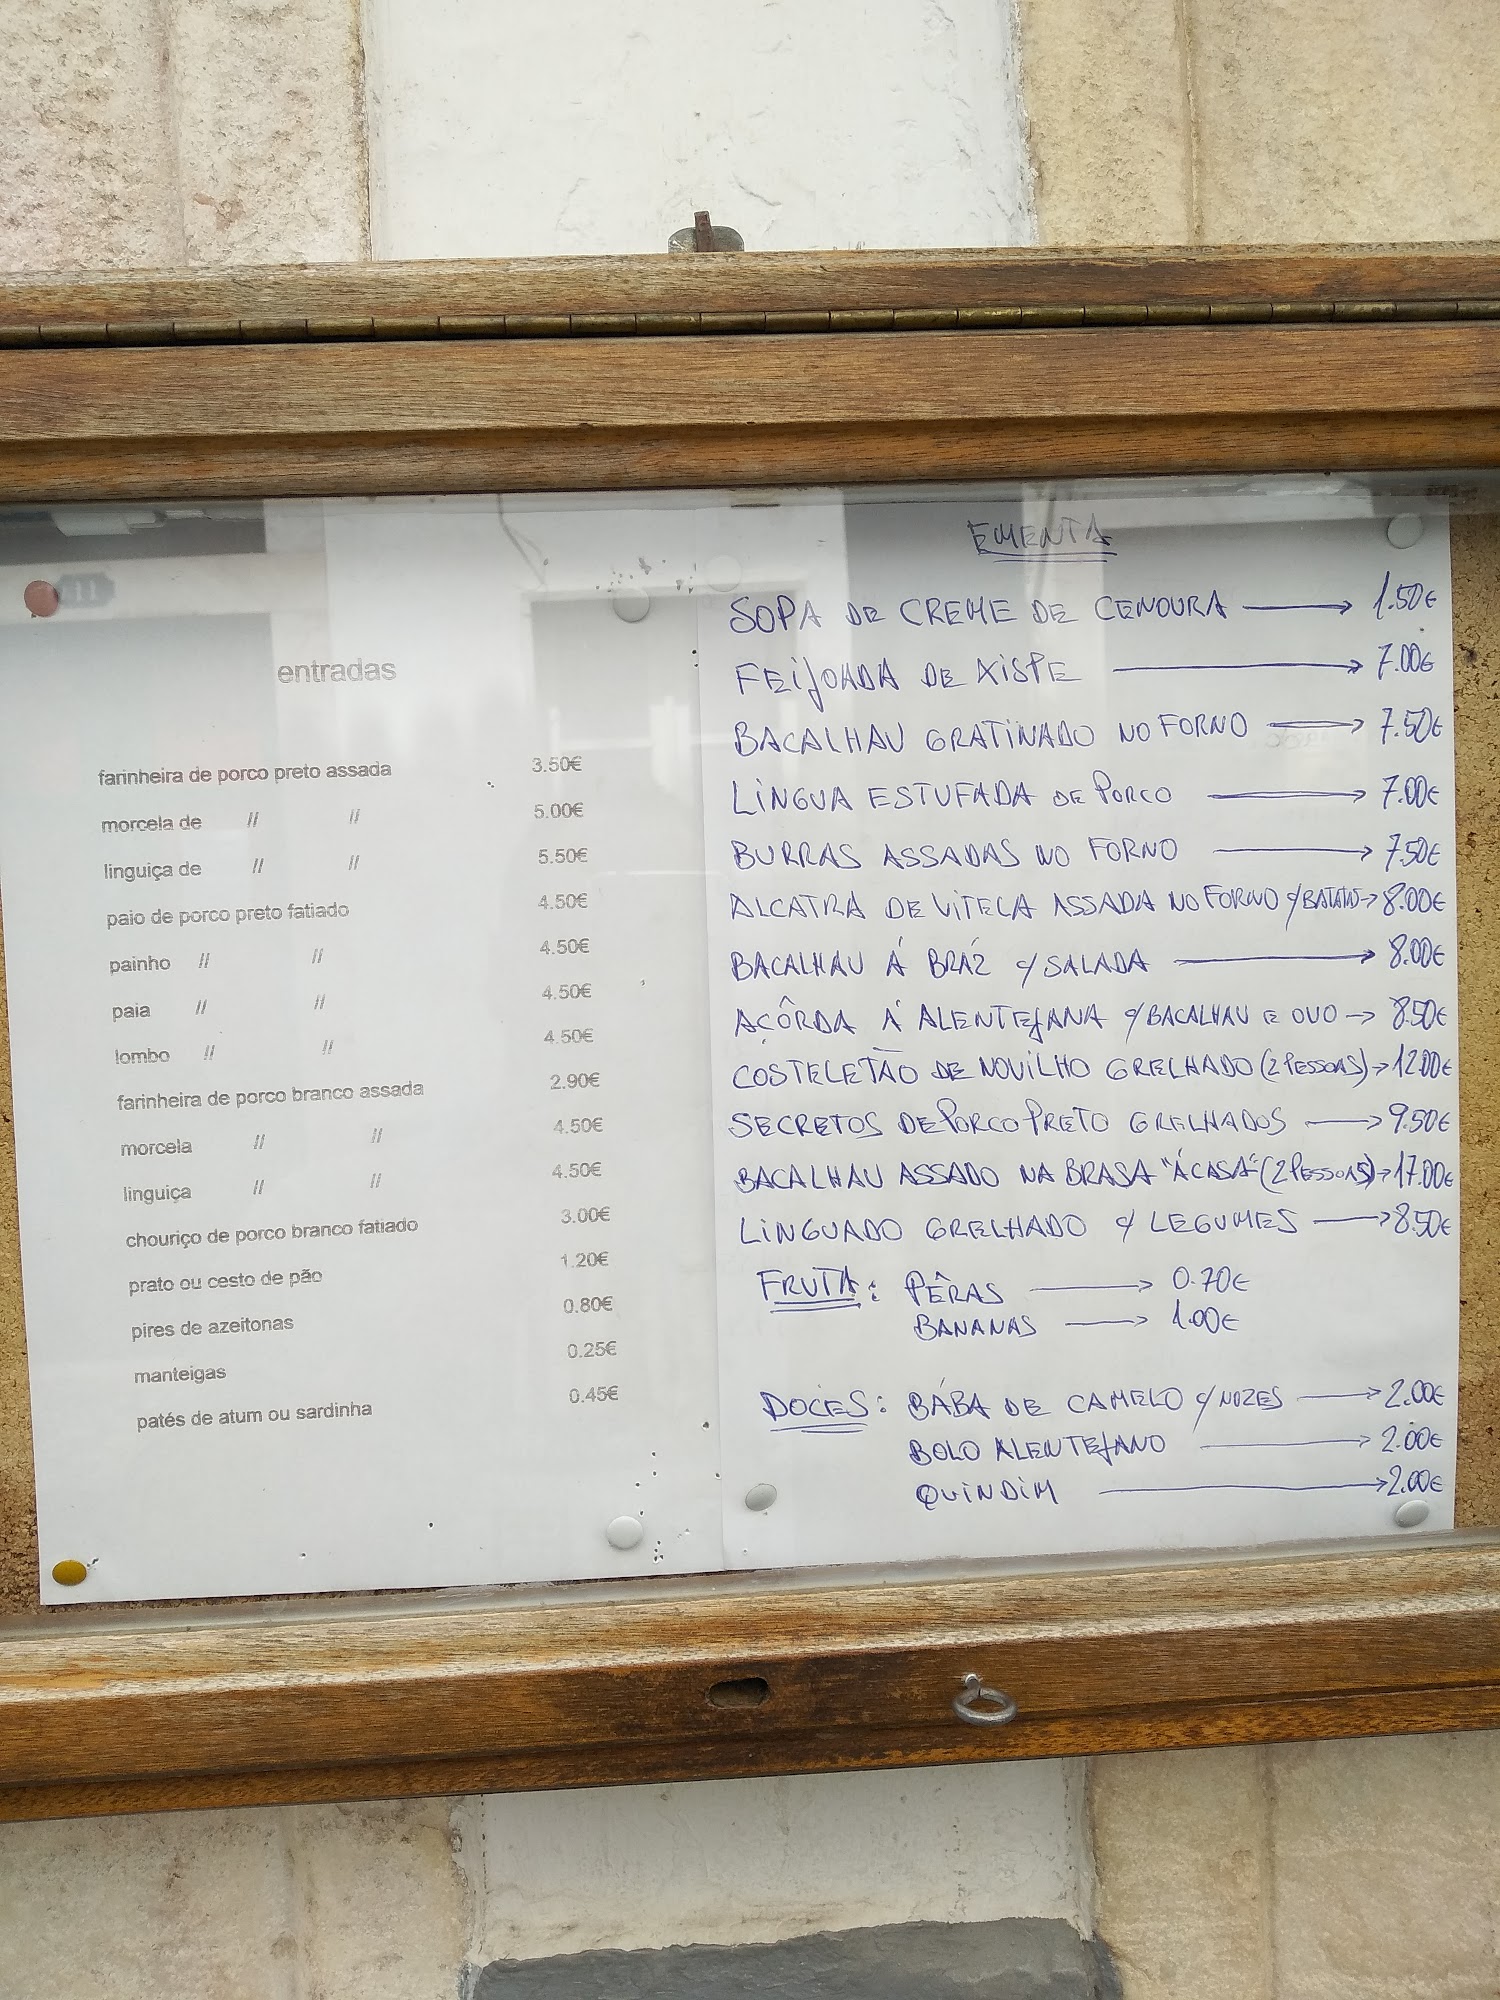 11
entradas
farinheira de porco preto assada 3.50€
morcela de // // 5.00€
linguiça de // // 5.50€
paio de porco preto fatiado 4.50€
painho // // 4.50€
paia // // 4.50€
lombo // // 4.50€
farinheira de porco branco assada 2.90€
morcela // // 4.50€
linguiça // // 4.50€
chouriço de porco branco fatiado 3.00€
prato ou cesto de pão 1.20€
pires de azeitonas 0.80€
manteigas 0.25€
patés de atum ou sardinha 0.45€
EMENTA
SOPA DE CREME DE CENOURA → 1.50€
FEIJOADA DE XISPE → 7.00€
BACALHAU GRATINADO NO FORNO → 7.50€
LINGUA ESTUFADA DE PORCO → 7.00€
BURRAS ASSADAS NO FORNO → 7.50€
ALCATRA DE VITELA ASSADA NO FORNO C/BATATA → 8.00€
BACALHAU Á BRÁZ C/SALADA → 8.00€
AÇÔRDA Á ALENTEJANA C/BACALHAU E OVO → 8.50€
COSTELETÃO DE NOVILHO GRELHADO (2 PESSOAS) → 12.00€
SECRETOS DE PORCO PRETO GRELHADOS → 9.50€
BACALHAU ASSADO NA BRASA "Á CASA" (2 PESSOAS) → 17.00€
LINGUADO GRELHADO C/ LEGUMES → 8.50€
FRUTA: PÊRAS → 0.70€
BANANAS → 1.00€
DOCES: BÁBA DE CAMELO C/NOZES → 2.00€
BOLO ALENTEJANO → 2.00€
QUINDIM → 2.00€